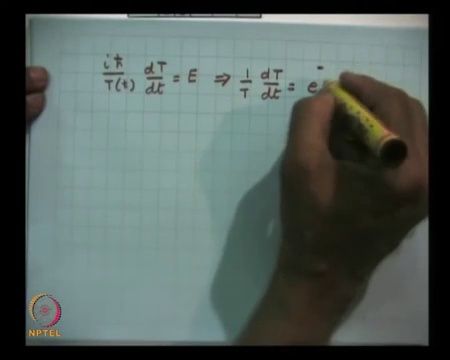 iħ/T(t) dT/dt = E ⇒ 1/T dT/dt = e
NPTEL